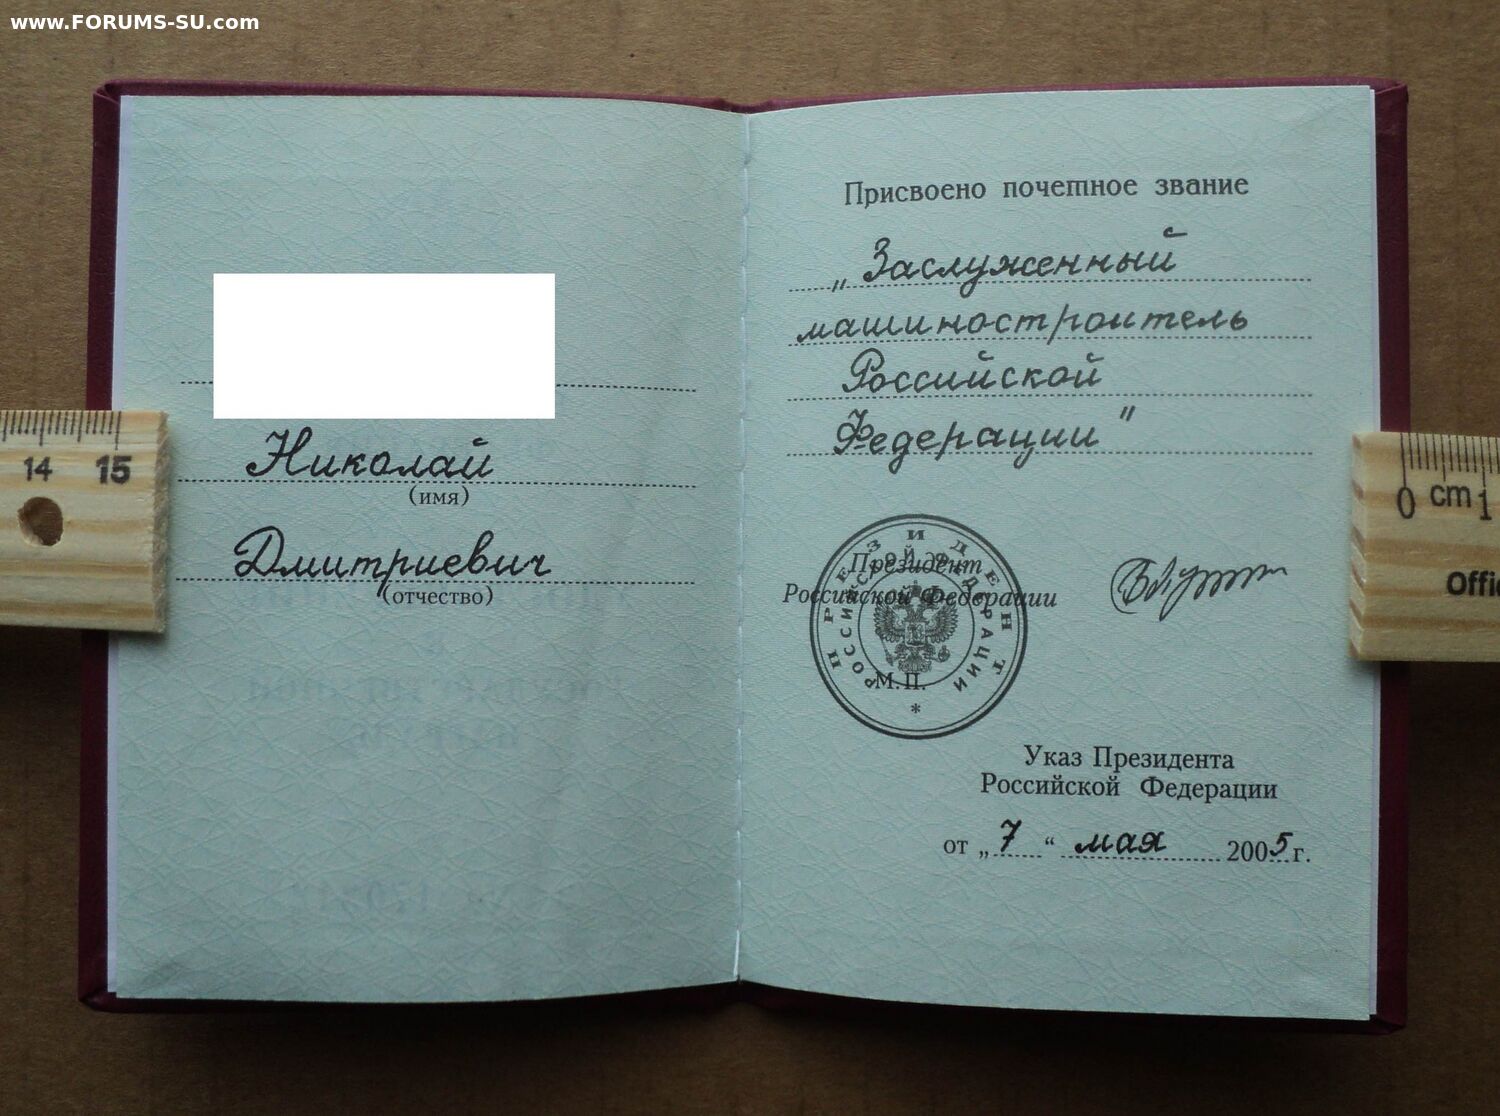 www.FORUMS-SU.com
Николай
(имя)
Дмитриевич
(отчество)
Присвоено почетное звание
„Заслуженный
машиностроитель
Российской
Федерации"
Президент
Российской Федерации
ПРЕЗИДЕНТ
РОССИЙСКОЙ ФЕДЕРАЦИИ
*
М.П.
Указ Президента
Российской Федерации
от „7“ мая 2005 г.
14 15
0 cm 1